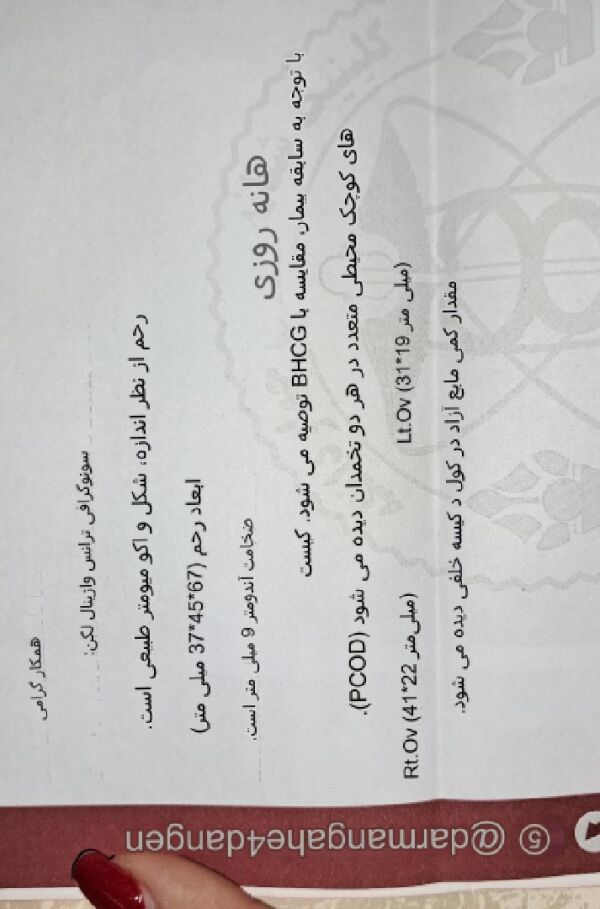 همکار گرامی
سونوگرافی ترانس واژینال لگن:
رحم از نظر اندازه، شکل و اکو میومتر طبیعی است.
ابعاد رحم (67*45*37 میلی متر)
ضخامت آندومتر 9 میلی متر است.
هانه روزی
با توجه به سابقه بیمار، مقایسه با BHCG توصیه می شود. کیست
های کوچک محیطی متعدد در هر دو تخمدان دیده می شود (PCOD).
Rt.Ov (41*22 میلی‌متر) Lt.Ov (31*19 میلی متر)
مقدار کمی مایع آزاد در کول د کیسه خلفی دیده می شود.
@darmangahe4dangeh